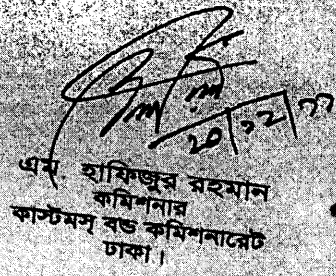 এম. হাফিজুর রহমান
কমিশনার
কাস্টমস্ বন্ড কমিশনারেট
ঢাকা।